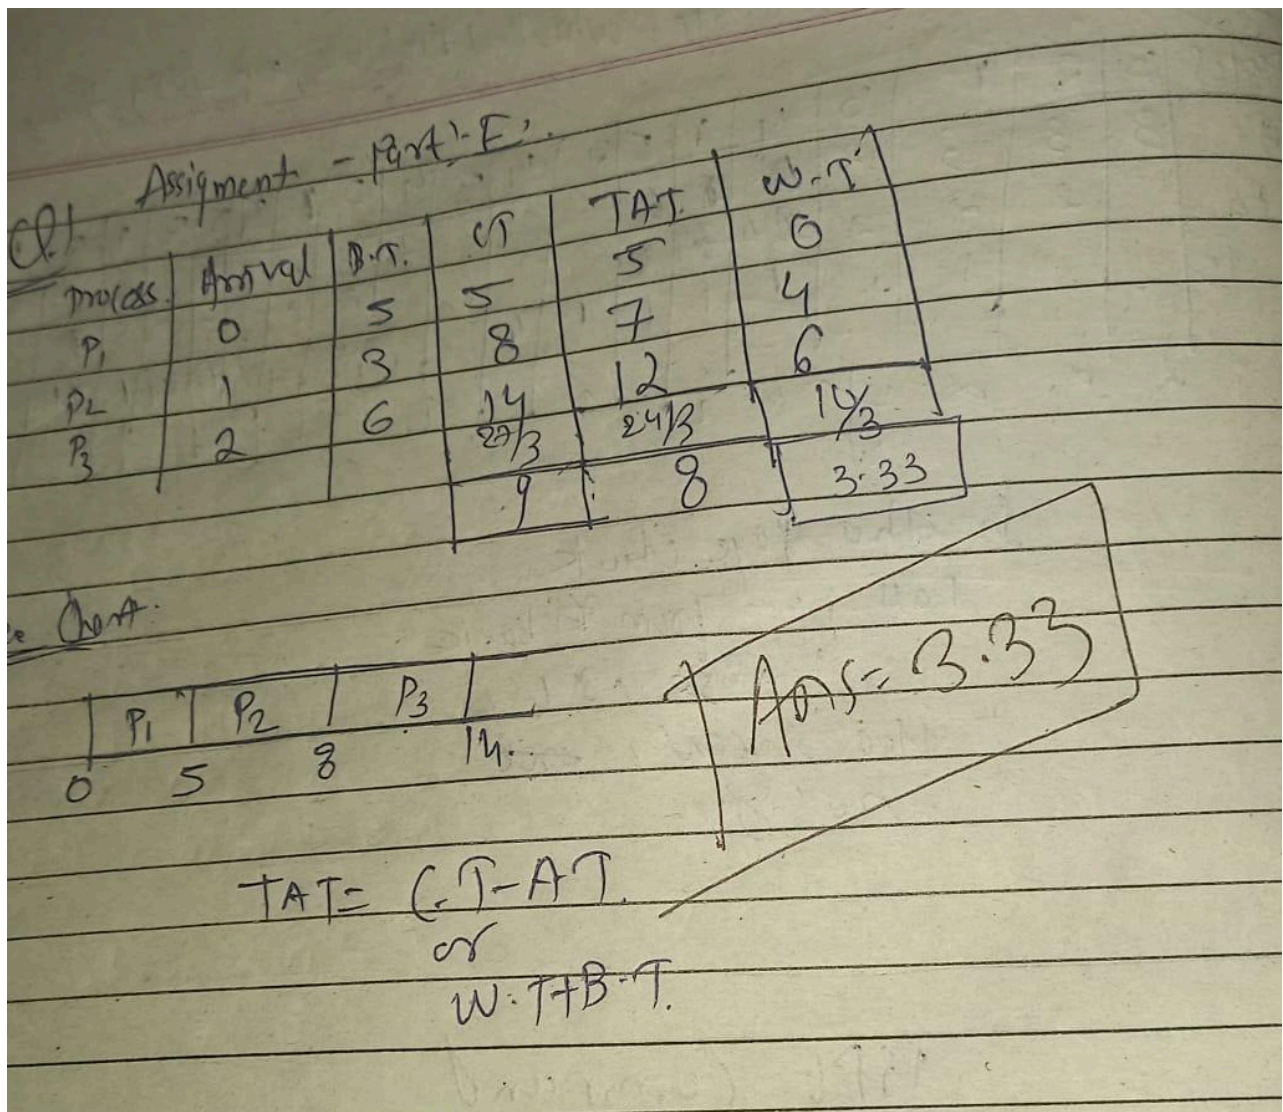 Assigment - Part-E
Q.1
Process Arrival B.T. CT TAT W.T
P1 0 5 5 5 0
P2 1 3 8 7 4
P3 2 6 14 12 6
27/3 24/3 10/3
9 8 3.33
Chart.
P1 P2 P3
0 5 8 14.
Ans= 3.33
TAT= C.T-AT.
or
W.T+B.T.